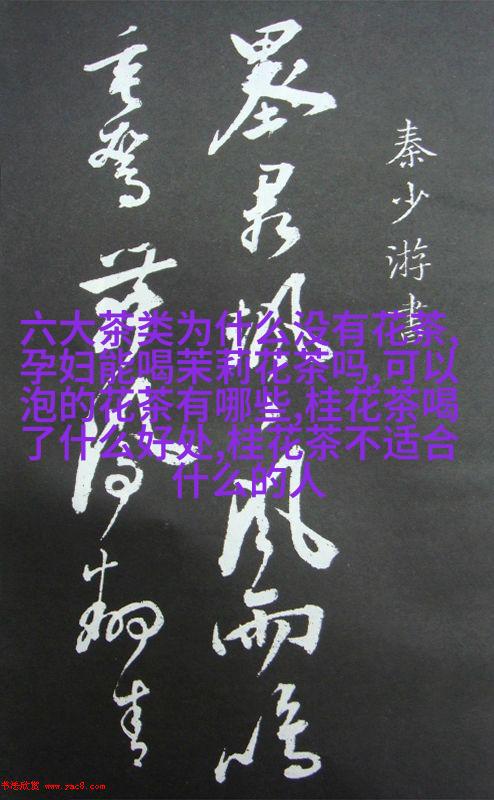 秦少游書
風雨鳴
六大茶类为什么没有花茶,
孕妇能喝茉莉花茶吗,可以
泡的花茶有哪些,桂花茶喝
了什么好处,桂花茶不适合
什么的人
书法欣赏 www.yac8.com